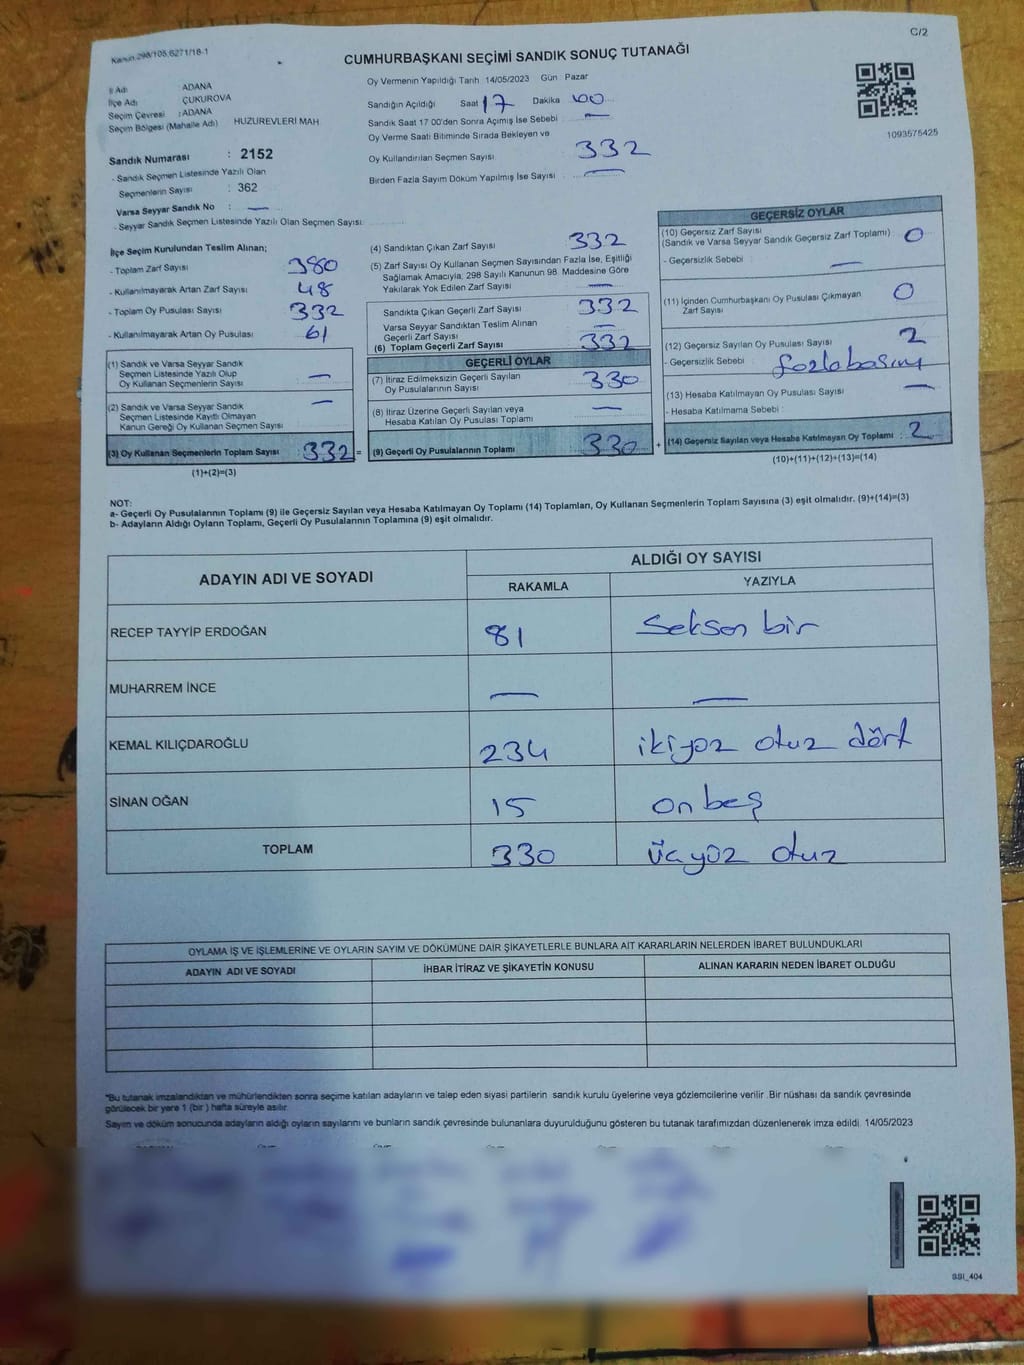 Kanun 298/105,6271/18-1
C/2
CUMHURBAŞKANI SEÇİMİ SANDIK SONUÇ TUTANAĞI
İl Adı ADANA
İlçe Adı ÇUKUROVA
Seçim Çevresi : ADANA
Seçim Bölgesi (Mahalle Adı) HUZUREVLERİ MAH
Sandık Numarası : 2152
- Sandık Seçmen Listesinde Yazılı Olan
Seçmenlerin Sayısı : 362
Varsa Seyyar Sandık No : —
- Seyyar Sandık Seçmen Listesinde Yazılı Olan Seçmen Sayısı:
Oy Vermenin Yapıldığı Tarih 14/05/2023 Gün Pazar
Sandığın Açıldığı Saat 17 Dakika 00
Sandık Saat 17 00'den Sonra Açımış İse Sebebi : —
Oy Verme Saati Bitiminde Sırada Bekleyen ve
Oy Kullandırılan Seçmen Sayısı 332
Birden Fazla Sayım Döküm Yapılmış İse Sayısı : —
1093575425
İlçe Seçim Kurulundan Teslim Alınan;
- Toplam Zarf Sayısı 380
- Kullanılmayarak Artan Zarf Sayısı : 48
- Toplam Oy Pusulası Sayısı : 332
- Kullanılmayarak Artan Oy Pusulası : 61
(1) Sandık ve Varsa Seyyar Sandık
Seçmen Listesinde Yazılı Olup
Oy Kullanan Seçmenlerin Sayısı : —
(2) Sandık ve Varsa Seyyar Sandık
Seçmen Listesinde Kayıtlı Olmayan
Kanun Gereği Oy Kullanan Seçmen Sayısı : —
(3) Oy Kullanan Seçmenlerin Toplam Sayısı : 332 =
(1)+(2)=(3)
(4) Sandıktan Çıkan Zarf Sayısı : 332
(5) Zarf Sayısı Oy Kullanan Seçmen Sayısından Fazla İse, Eşitliği
Sağlamak Amacıyla, 298 Sayılı Kanunun 98. Maddesine Göre
Yakılarak Yok Edilen Zarf Sayısı : —
Sandıkta Çıkan Geçerli Zarf Sayısı : 332
Varsa Seyyar Sandıktan Teslim Alınan
Geçerli Zarf Sayısı : —
(6) Toplam Geçerli Zarf Sayısı : 332
GEÇERLİ OYLAR
(7) İtiraz Edilmeksizin Geçerli Sayılan
Oy Pusulalarının Sayısı : 330
(8) İtiraz Üzerine Geçerli Sayılan veya
Hesaba Katılan Oy Pusulası Toplamı : —
(9) Geçerli Oy Pusulalarının Toplamı : 330 +
GEÇERSİZ OYLAR
(10) Geçersiz Zarf Sayısı
(Sandık ve Varsa Seyyar Sandık Geçersiz Zarf Toplamı) : 0
- Geçersizlik Sebebi : —
(11) İçinden Cumhurbaşkanı Oy Pusulası Çıkmayan
Zarf Sayısı : 0
(12) Geçersiz Sayılan Oy Pusulası Sayısı : 2
- Geçersizlik Sebebi : fazla basım
(13) Hesaba Katılmayan Oy Pusulası Sayısı : —
- Hesaba Katılmama Sebebi :
(14) Geçersiz Sayılan veya Hesaba Katılmayan Oy Toplamı : 2
(10)+(11)+(12)+(13)=(14)
NOT:
a- Geçerli Oy Pusulalarının Toplamı (9) ile Geçersiz Sayılan veya Hesaba Katılmayan Oy Toplamı (14) Toplamları, Oy Kullanan Seçmenlerin Toplam Sayısına (3) eşit olmalıdır. (9)+(14)=(3)
b- Adayların Aldığı Oyların Toplamı, Geçerli Oy Pusulalarının Toplamına (9) eşit olmalıdır.
ADAYIN ADI VE SOYADI ALDIĞI OY SAYISI
RAKAMLA YAZIYLA
RECEP TAYYİP ERDOĞAN 81 Seksen bir
MUHARREM İNCE — —
KEMAL KILIÇDAROĞLU 234 ikiyüz otuz dört
SİNAN OĞAN 15 on beş
TOPLAM 330 Üçyüz otuz
OYLAMA İŞ VE İŞLEMLERİNE VE OYLARIN SAYIM VE DÖKÜMÜNE DAİR ŞİKAYETLERLE BUNLARA AİT KARARLARIN NELERDEN İBARET BULUNDUKLARI
ADAYIN ADI VE SOYADI İHBAR İTİRAZ VE ŞİKAYETİN KONUSU ALINAN KARARIN NEDEN İBARET OLDUĞU
*Bu tutanak imzalandıktan ve mühürlendikten sonra seçime katılan adayların ve talep eden siyasi partilerin sandık kurulu üyelerine veya gözlemcilerine verilir. Bir nüshası da sandık çevresinde
görülecek bir yere 1 (bir) hafta süreyle asılır.
Sayım ve döküm sonucunda adayların aldığı oyların sayılarını ve bunların sandık çevresinde bulunanlara duyurulduğunu gösteren bu tutanak tarafımızdan düzenlenerek imza edildi. 14/05/2023
SSI_404